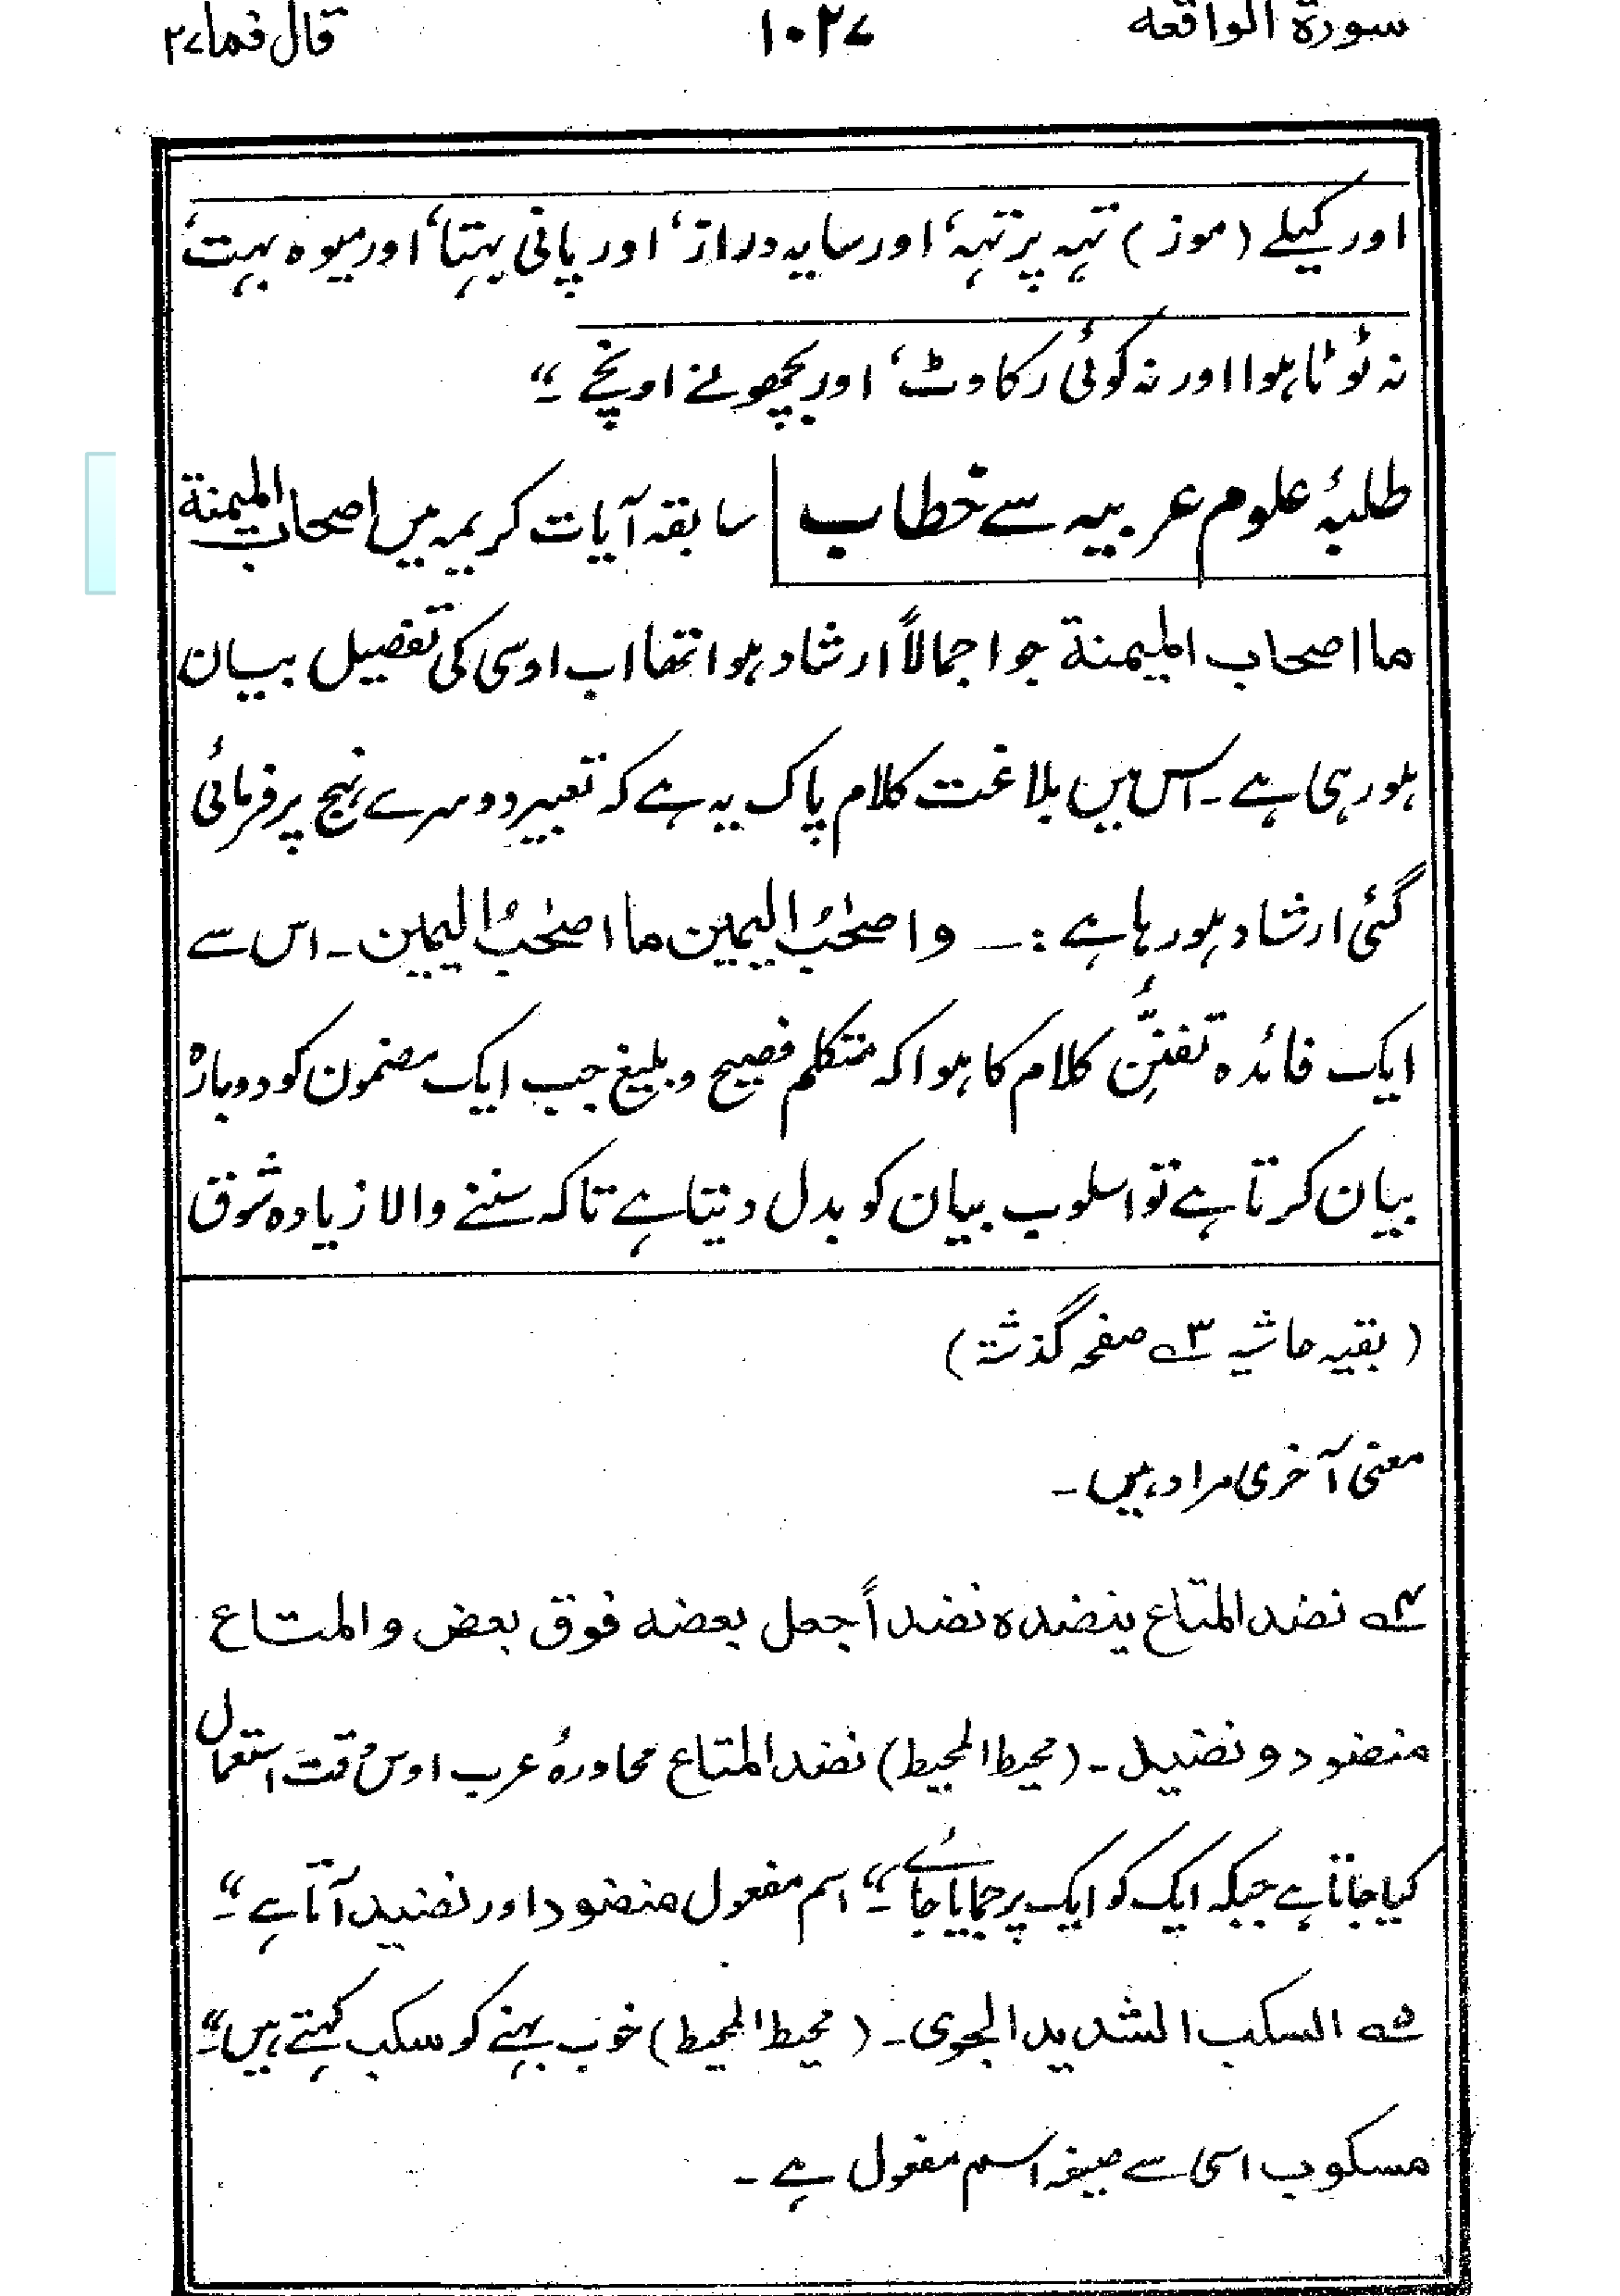 سورۃ الواقعہ ۱۰۲۷ قال فما ۲۷
اور کیلے (موز) تہہ پر تہہ، اور سایہ دراز، اور پانی بہتا، اور میوہ بہت،
نہ ٹوٹا ہوا اور نہ کوئی رکاوٹ، اور بچھونے اونچے ۔"
طلبۂ علوم عربیہ سے خطاب سابقہ آیات کریمہ میں اصحاب المیمنۃ
ما اصحاب المیمنۃ جو اجمالاً ارشاد ہوا تھا اب اوسی کی تفصیل بیان
ہو رہی ہے ۔ اس میں بلاغت کلام پاک یہ ہے کہ تعبیر دوسرے نہج پر فرمائی
گئی ارشاد ہو رہا ہے :— واصحٰبُ الیمین ما اصحٰبُ الیمین ۔ اس سے
ایک فائدہ تفنُّنِ کلام کا ہوا کہ متکلم فصیح و بلیغ جب ایک مضمون کو دوبارہ
بیان کرتا ہے تو اسلوب بیان کو بدل دیتا ہے تاکہ سننے والا زیادہ شوق
(بقیہ حاشیہ ۳ صفحہ گذشتہ)
معنی آخری مراد ہیں ۔
۴ نضد المتاع ینضدہ نضداً جعل بعضہ فوق بعض والمتاع
منضود و نضید ۔ (محیط المحیط) نضد المتاع محاورۂ عرب اوس وقت استعمال
کیا جاتا ہے جبکہ ایک کو ایک پر جمایا جائے ۔" اسم مفعول منضود اور نضید آتا ہے ۔"
۵ السکب الشدید الجری ۔ (محیط المحیط) خوب بہنے کو سکب کہتے ہیں ۔"
مسکوب اسی سے صیغہ اسم مفعول ہے ۔